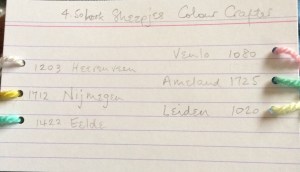 Sheepjes Colour Crafter
Venlo 1080
1203 Heerenveen
Ameland 1725
1712 Nijmegen
Leiden 1020
1422 Eelde